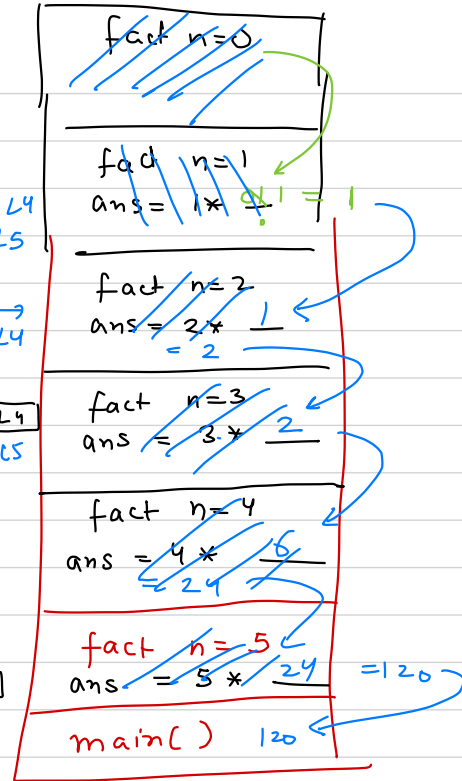 fact n=0
fact n=1
ans = 1* 0!1 = 1
L4
L5
fact n=2
ans = 2* 1
= 2
L4
fact n=3
L4
ans = 3.* 2
L5
fact n=4
ans = 4* 6
= 24
fact n=5
ans = 5* 24 =120
main() 120